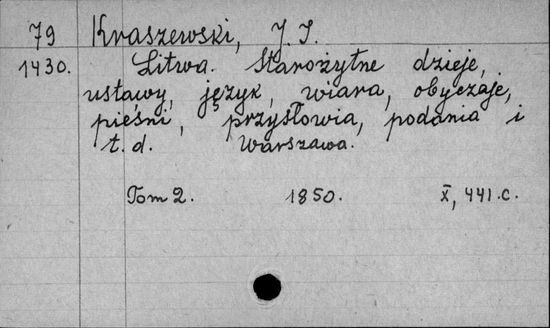 79 Kraszewski, J. I.
1430. Litwa. Starożytne dzieje,
ustawy, język, wiara, obyczaje,
pieśni, przysłowia, podania i
t. d. Warszawa.
Tom 2. 1850. X, 441.c.